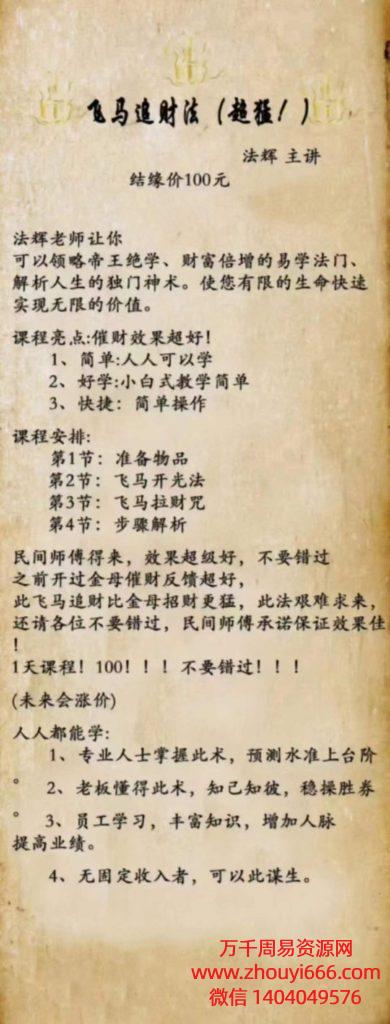 飞马追财法（超猛！）
法辉 主讲
结缘价100元
法辉老师让你
可以领略帝王绝学、财富倍增的易学法门、
解析人生的独门神术。使您有限的生命快速
实现无限的价值。
课程亮点:催财效果超好！
1、简单:人人可以学
2、好学:小白式教学简单
3、快捷：简单操作
课程安排:
第1节：准备物品
第2节：飞马开光法
第3节：飞马拉财咒
第4节：步骤解析
民间师傅得来，效果超级好，不要错过
之前开过金母催财反馈超好，
此飞马追财比金母招财更猛，此法艰难求来，
还请各位不要错过，民间师傅承诺保证效果佳
！
1天课程！100！！！不要错过！！！
(未来会涨价)
人人都能学:
1、专业人士掌握此术，预测水准上台阶
。 2、老板懂得此术，知己知彼，稳操胜券
。 3、员工学习，丰富知识，增加人脉
提高业绩。
4、无固定收入者，可以此谋生。
万千周易资源网
www.zhouyi666.com
微信 1404049576